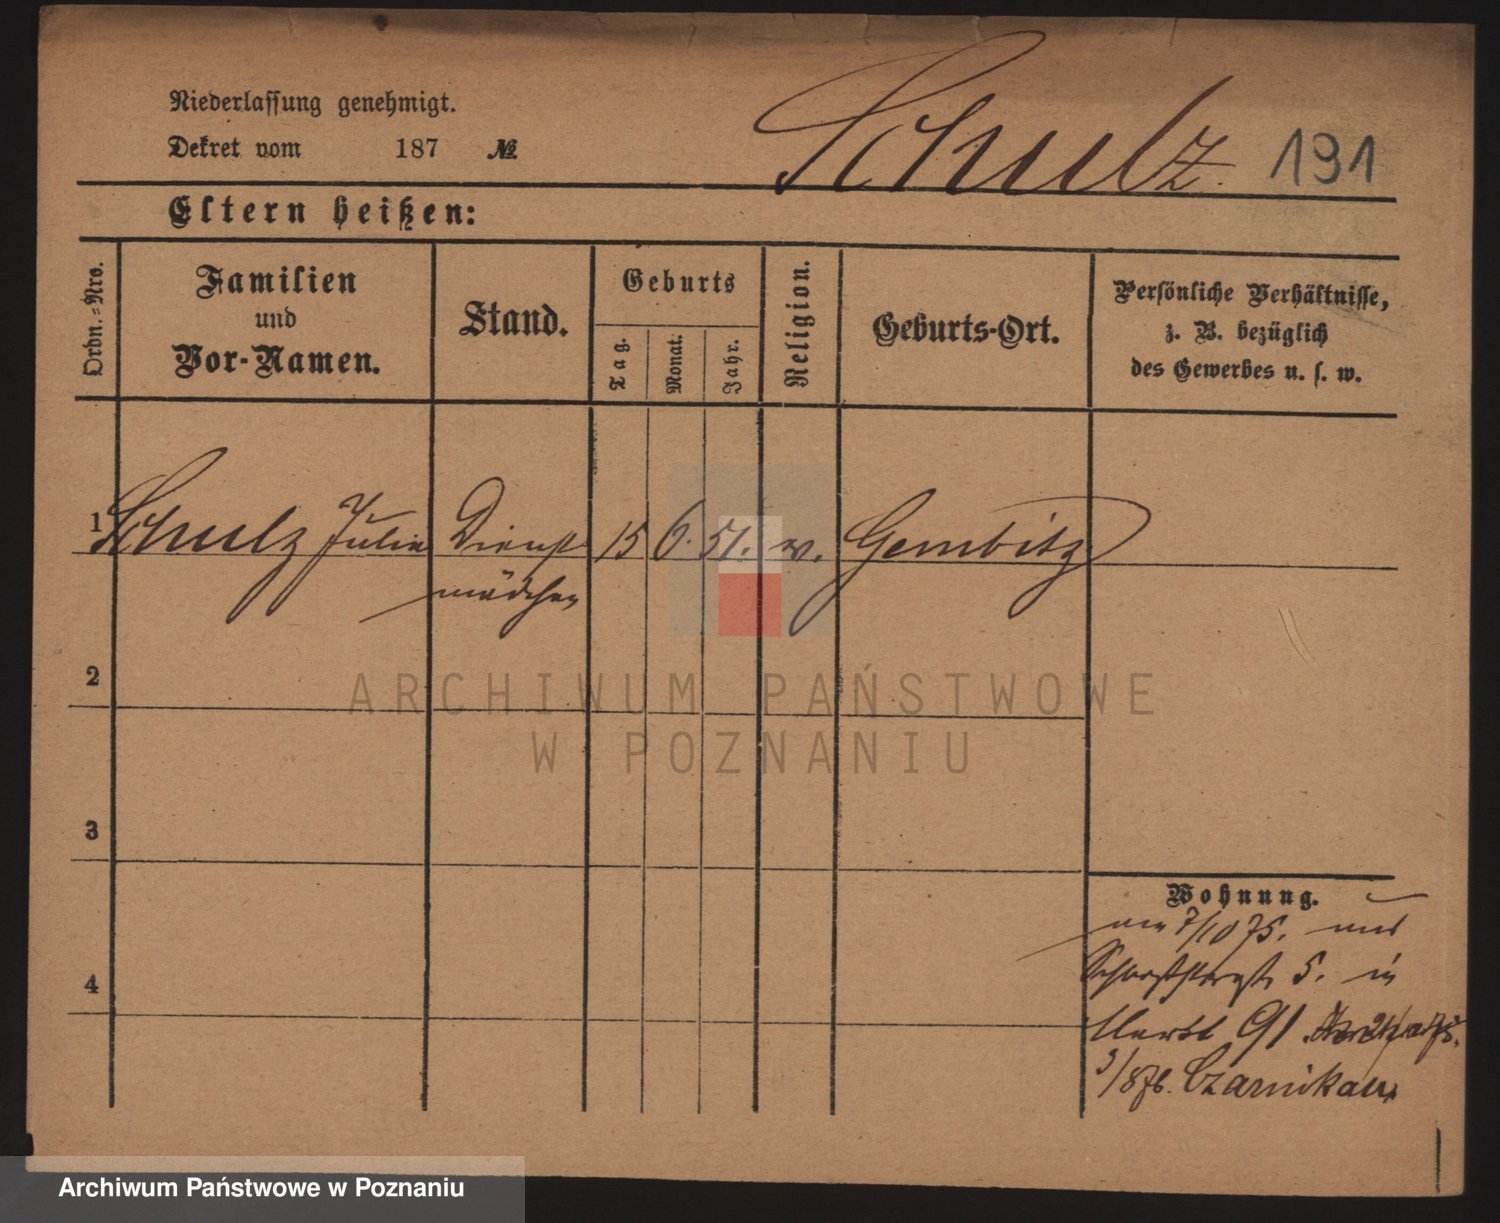 Niederlassung genehmigt.
Dekret vom 187 №
Schulz. 191
Eltern heißen:
Ordn.-Nro.
Familien
und
Vor-Namen.
Stand.
Geburts
Tag.
Monat.
Jahr.
Religion.
Geburts-Ort.
Persönliche Verhältnisse,
z. B. bezüglich
des Gewerbes u. s. w.
1 Schulz Julie Dienst 15 6. 51. Gembitz
mädchen
2
ARCHIWUM PAŃSTWOWE
W POZNANIU
3
Wohnung.
7/10 75.
5. in
4
Markt 91
3/8 76. Czarnikau.
Archiwum Państwowe w Poznaniu